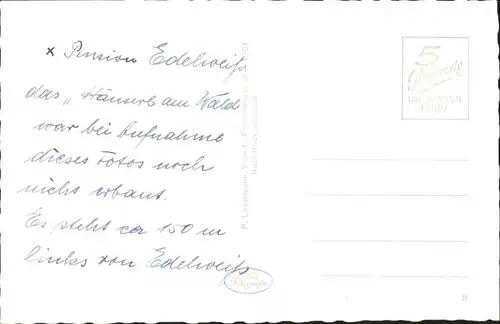 x Pension Edelweiß
das „Häuserl am Wald
war bei Aufnahme
dieses Fotos noch
nicht erbaut.
Es steht ca 150 m
links von Edelweiß
5